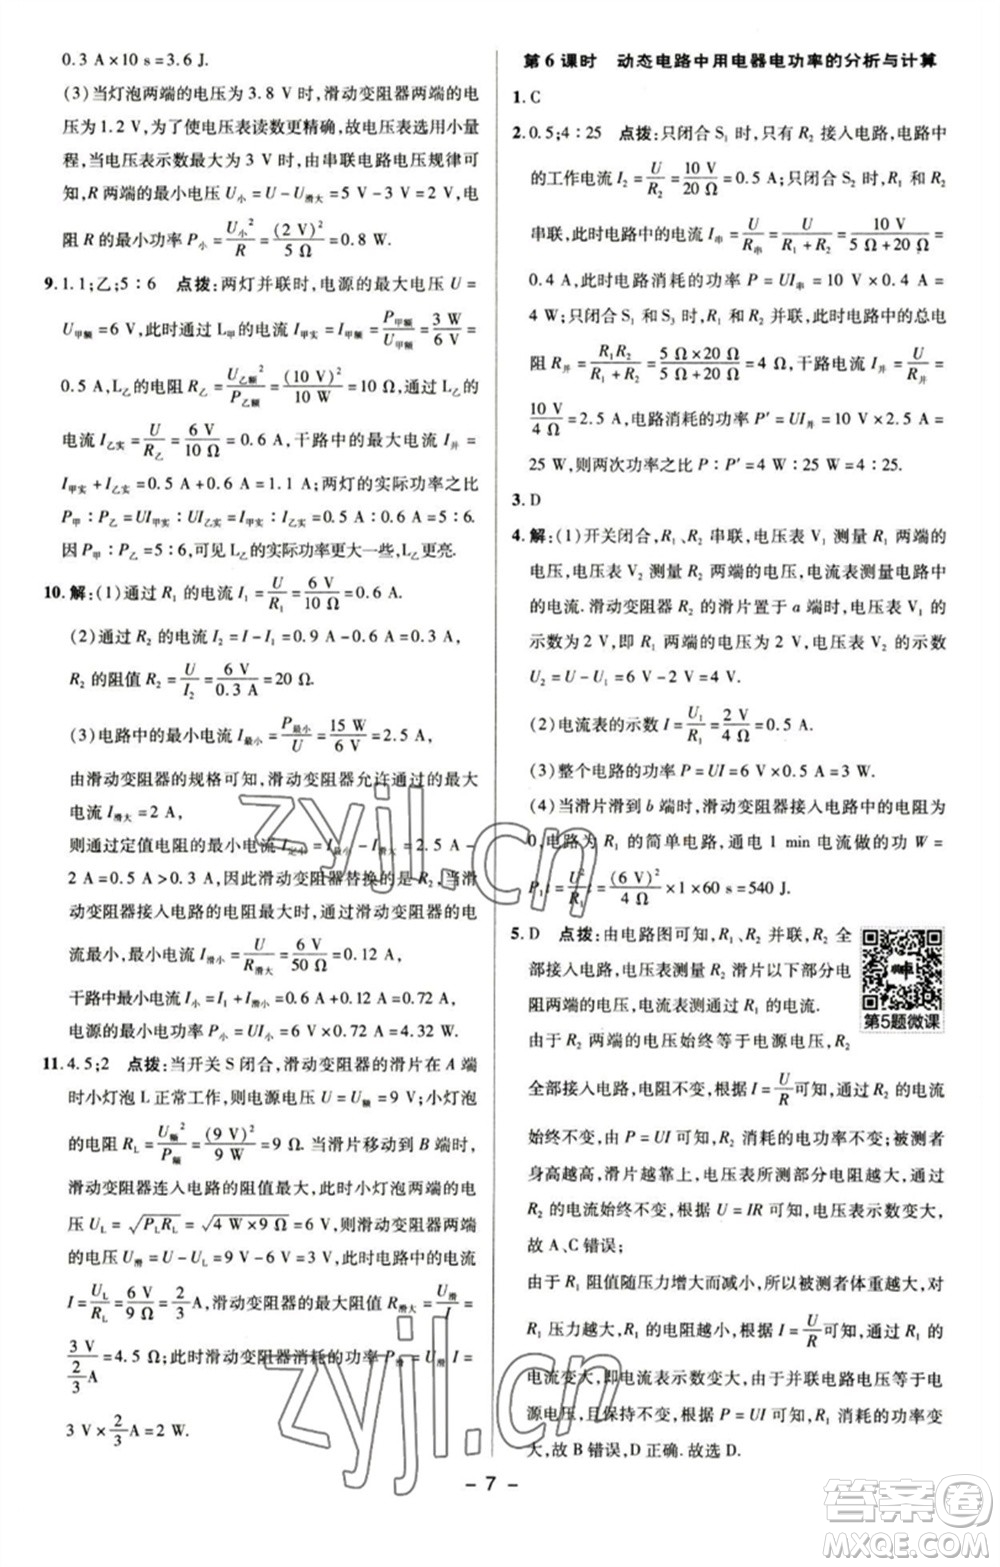 0.3 A×10 s=3.6 J.
(3)当灯泡两端的电压为 3.8 V 时,滑动变阻器两端的电
压为 1.2 V,为了使电压表读数更精确,故电压表选用小量
程,当电压表示数为 3 V 时,由串联电路电压规律可
知,R 两端的最小电压 U小=U-U滑大=5 V-3 V=2 V,电
阻 R 的最小功率 P小=U小²/R=(2 V)²/5 Ω=0.8 W.
9. 1.1;乙;5∶6 点拨:两灯并联时,电源的最大电压 U=
U甲额=6 V,此时通过 L甲的电流 I甲实=P甲额/U甲额=3 W/6 V=
0.5 A,L乙的电阻 R乙=U乙额²/P乙额=(10 V)²/10 W=10 Ω,通过 L乙的
电流 I乙实=U/R乙=6 V/10 Ω=0.6 A,干路中的最大电流 I并=
I甲实+I乙实=0.5 A+0.6 A=1.1 A;两灯的实际功率之比
P甲∶P乙=UI甲实∶UI乙实=I甲实∶I乙实=0.5 A∶0.6 A=5∶6.
因 P甲∶P乙=5∶6,可见 L乙的实际功率更大一些,L乙更亮.
10. 解:(1)通过 R₁ 的电流 I₁=U/R₁=6 V/10 Ω=0.6 A.
(2)通过 R₂ 的电流 I₂=I-I₁=0.9 A-0.6 A=0.3 A,
R₂ 的阻值 R₂=U/I₂=6 V/0.3 A=20 Ω.
(3)电路中的最小电流 I最小=P最小/U=15 W/6 V=2.5 A,
由滑动变阻器的规格可知,滑动变阻器允许通过的最大
电流 I滑大=2 A,
则通过定值电阻的最小电流 I定小=I最小-I滑大=2.5 A-
2 A=0.5 A>0.3 A,因此滑动变阻器替换的是 R₂,当滑
动变阻器接入电路的电阻最大时,通过滑动变阻器的电
流最小,最小电流 I滑小=U/R滑大=6 V/50 Ω=0.12 A,
干路中的最小电流 I小=I₁+I滑小=0.6 A+0.12 A=0.72 A,
电源的最小电功率 P小=UI小=6 V×0.72 A=4.32 W.
11. 4.5;2 点拨:当开关 S 闭合,滑动变阻器的滑片在 A 端
时小灯泡 L 正常工作,则电源电压 U=U额=9 V;小灯泡
的电阻 R_L=U额²/P额=(9 V)²/9 W=9 Ω.当滑片移动到 B 端时,
滑动变阻器连入电路的阻值最大,此时小灯泡两端的电
压 U_L=√(P_L R_L)=√(4 W×9 Ω)=6 V,则滑动变阻器两端
的电压 U滑=U-U_L=9 V-6 V=3 V,此时电路中的电流
I=U_L/R_L=6 V/9 Ω=2/3 A,滑动变阻器的最大阻值 R滑大=U滑/I=
3 V/(2/3 A)=4.5 Ω;此时滑动变阻器消耗的功率 P滑=U滑 I=
3 V×2/3 A=2 W.
第 6 课时 动态电路中用电器电功率的分析与计算
1. C
2. 0.5;4∶25 点拨:只闭合 S₁ 时,只有 R₂ 接入电路,电路中
的工作电流 I₂=U/R₂=10 V/20 Ω=0.5 A;只闭合 S₂ 时,R₁ 和 R₂
串联,此时电路中的电流 I串=U/R串=U/(R₁+R₂)=10 V/(5 Ω+20 Ω)=
0.4 A,此时电路消耗的功率 P=UI串=10 V×0.4 A=
4 W;只闭合 S₁ 和 S₃ 时,R₁ 和 R₂ 并联,此时电路中的总电
阻 R并=R₁R₂/(R₁+R₂)=(5 Ω×20 Ω)/(5 Ω+20 Ω)=4 Ω,干路电流 I并=U/R并=
10 V/4 Ω=2.5 A,电路消耗的功率 P′=UI并=10 V×2.5 A=
25 W,则两次功率之比 P∶P′=4 W∶25 W=4∶25.
3. D
4. 解:(1)开关闭合,R₁、R₂ 串联,电压表 V₁ 测量 R₁ 两端的
电压,电压表 V₂ 测量 R₂ 两端的电压,电流表测量电路中
的电流.滑动变阻器 R₂ 的滑片置于 a 端时,电压表 V₁ 的
示数为 2 V,即 R₁ 两端的电压为 2 V,电压表 V₂ 的示数
U₂=U-U₁=6 V-2 V=4 V.
(2)电流表的示数 I=U₁/R₁=2 V/4 Ω=0.5 A.
(3)整个电路的功率 P=UI=6 V×0.5 A=3 W.
(4)当滑片滑到 b 端时,滑动变阻器接入电路中的电阻为
0,电路为 R₁ 的简单电路,通电 1 min 电流做的功 W=
P₁t=U²/R₁ t=(6 V)²/4 Ω×1×60 s=540 J.
5. D 点拨:由电路图可知,R₁、R₂ 并联,R₂ 全
部接入电路,电压表测量 R₂ 滑片以下部分电
阻两端的电压,电流表测量通过 R₁ 的电流.
由于 R₂ 两端的电压始终等于电源电压,R₂
第5题微课
全部接入电路,电阻不变,根据 I=U/R 可知,通过 R₂ 的电流
始终不变,由 P=UI 可知,R₂ 消耗的电功率不变;被测者
身高越高,滑片越靠上,电压表所测部分电阻越大,通过
R₂ 的电流始终不变,根据 U=IR 可知,电压表示数越大,
故 A、C 错误;
由于 R₁ 阻值随压力增大而减小,所以被测者体重越大,对
R₁ 压力越大,R₁ 的电阻越小,根据 I=U/R 可知,通过 R₁ 的
电流变大,电流表示数变大,由于并联电路电压等于电
源电压,且保持不变,根据 P=UI 可知,R₁ 消耗的功率变
大,故 B 错误,D 正确.故选 D.
- 7 -
zyjl.cn
zyjl.cn
答案圈
MXQE.COM